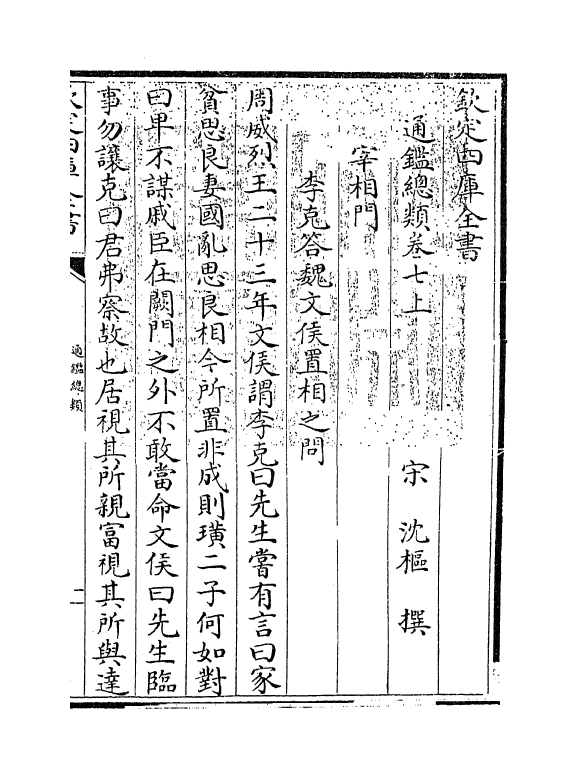 欽定四庫全書
通鑑總類卷七上
宋 沈樞 撰
宰相門
李克答魏文侯置相之問
周威烈王二十三年文侯謂李克曰先生嘗有言曰家
貧思良妻國亂思良相今所置非成則璜二子何如對
曰卑不謀戚臣在闕門之外不敢當命文侯曰先生臨
事勿讓克曰君弗察故也居視其所親富視其所與達
欽定四庫全書
通鑑總類